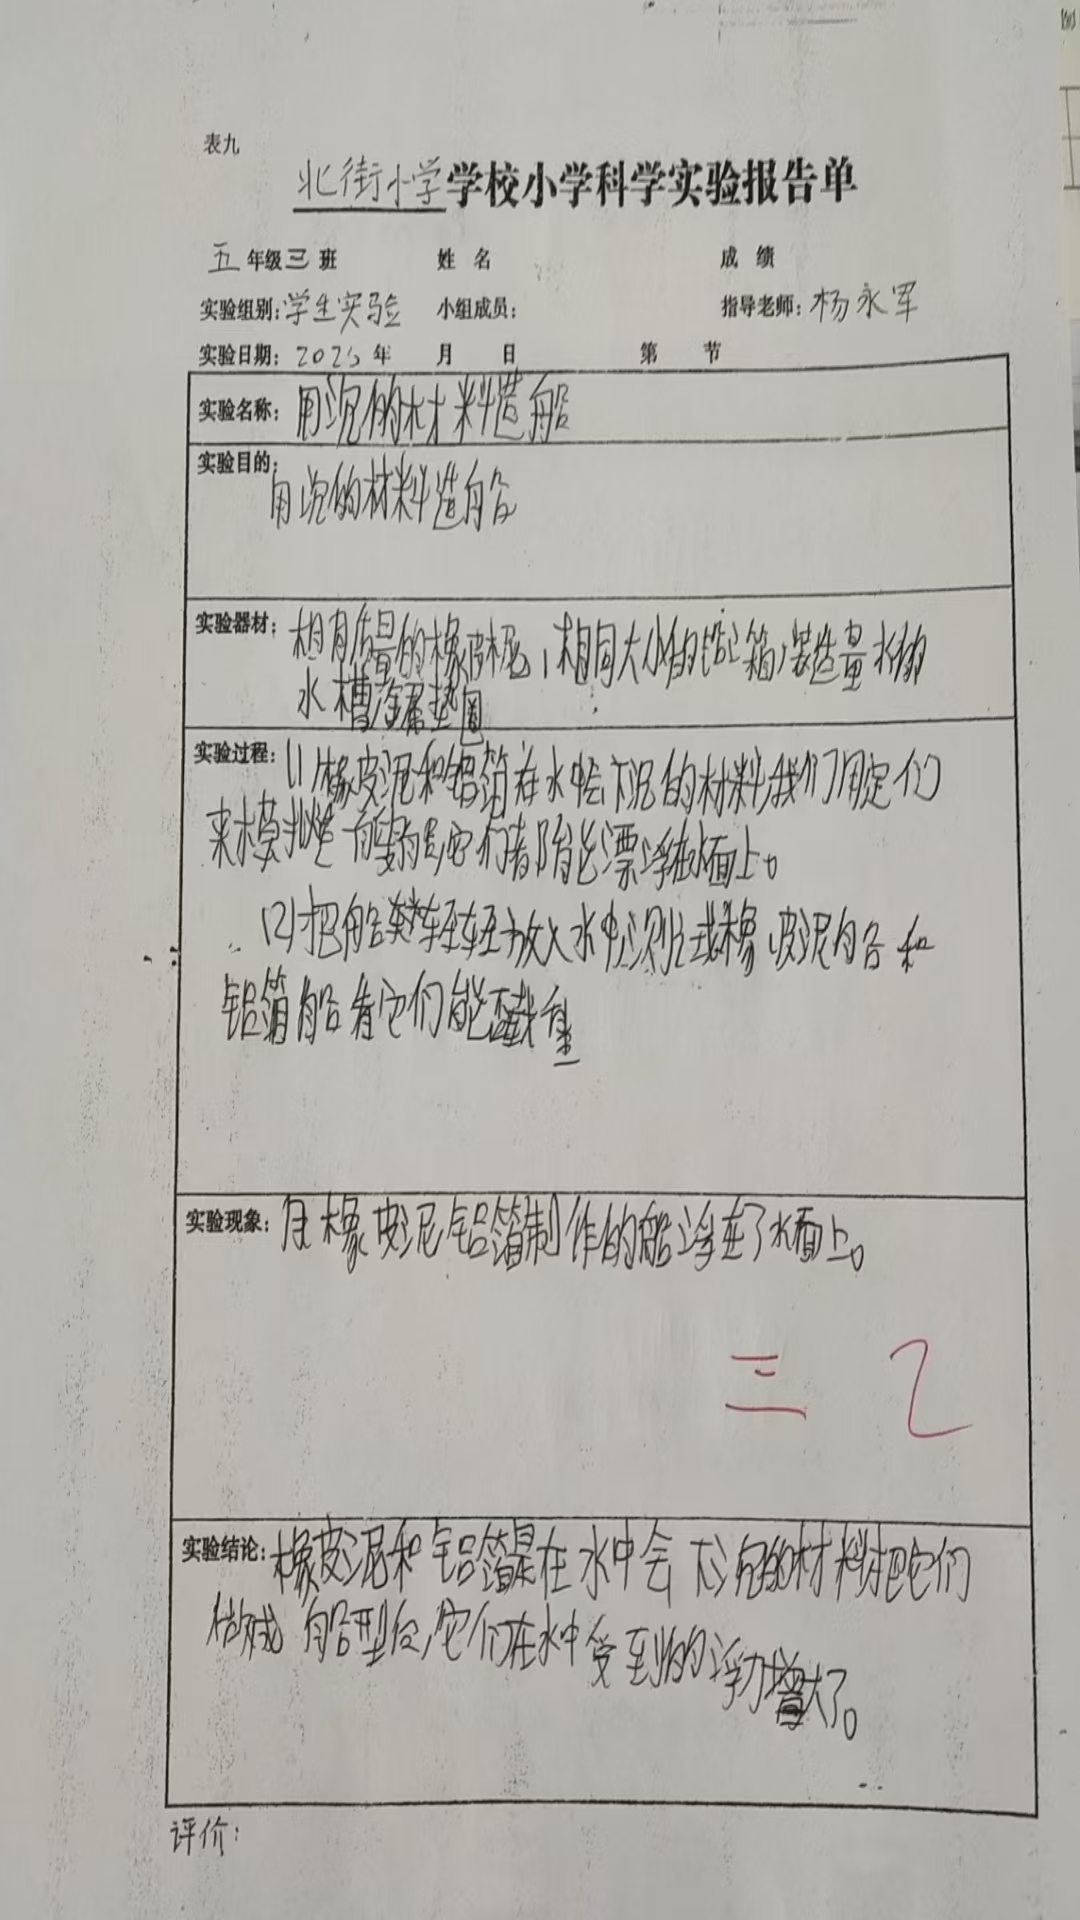 表九
北街小学学校小学科学实验报告单
五年级三班 姓名 成绩
实验组别:学生实验 小组成员: 指导老师:杨永军
实验日期:2025年 月 日 第 节
实验名称:用沉的材料造船
实验目的:
用沉的材料造船
实验器材:相有质量的橡皮泥,相同大小的铝箔,装适量水的
水槽 金属垫圈
实验过程:(1)橡皮泥和铝箔在水中会下沉的材料,我们用它们
来模拟造 它们都能漂浮在水面上。
(2)把船 轻轻放入水中, 橡皮泥船和
铝箔船看它们能否载重
实验现象:用橡皮泥铝箔制作的船浮在了水面上。
三 乙
实验结论:橡皮泥和铝箔是在水中会下沉的材料把它们
做成船型后,它们在水中受到的浮力增大了。
评价: